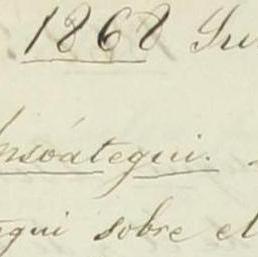 1868 Su
nsoátegui.
egui sobre el